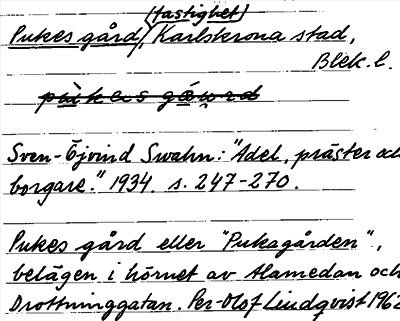 (fastighet)
Pukes gård, Karlskrona stad,
Blek. l.
Sven-Öjvind Swahn: "Adel, präster och
borgare." 1934. s. 247-270.
Pukes gård eller "Pukagården",
belägen i hörnet av Alamedan och
Drottninggatan. Per-Olof Lindqvist 1962